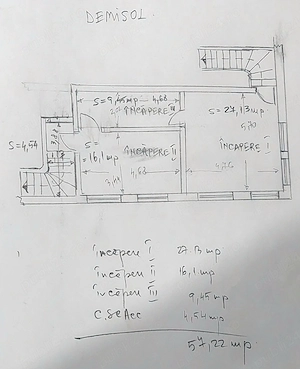 DEMISOL
S=9,45mp 4,68
ÎNCĂPERE III
S=27,13 mp
5,70
S=4,54
S=
16,1 mp
ÎNCĂPERE II
4,68
ÎNCĂPERE I
Încăpere I 27.13 mp
Încăpere II 16,1 mp
Încăpere III 9,45 mp
C.SCĂRI 4,54 mp
57,22 mp